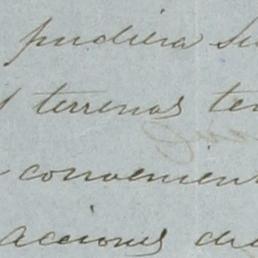 pudiera su
terrenos te
convenien
acciones de